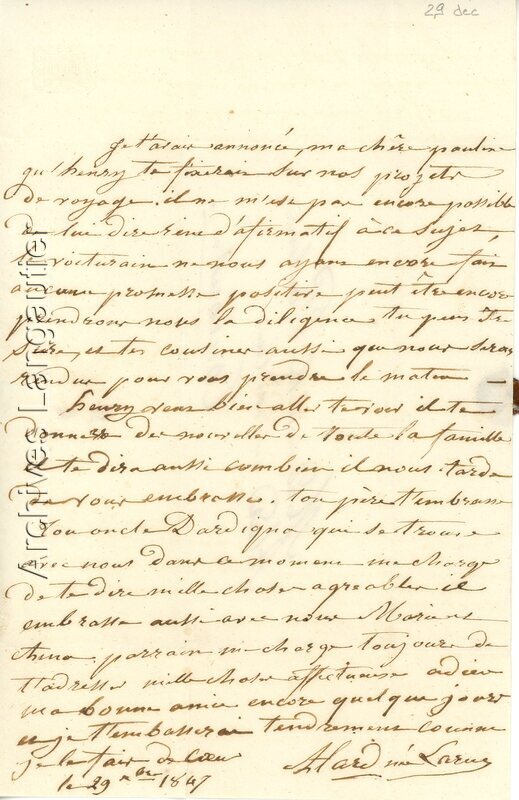 29 dec
Je t'avais annoncé, ma chère pauline
qu'henry te fixerais sur nos projets
de voyage, il ne m'est pas encore possible
de lui dire rien d'afirmatif à ce sujet
le voiturain ne nous ayant encore fait
aucune promesse positive peut être encore
prendrons nous la diligence tu peus être
sure, et tes cousines aussi que nous serons
rendus pour vous prendre le matin —
henry veut bien aller te voir il te
donnera des nouvelles de toute la famille
et te dira aussi combien il nous tarde
de vous embrasser. ton père t'embrasse
ton oncle Dardigna qui se trouve
avec nous dans ce moment me charge
de te dire mille choses agreables il
embrasse aussi avec nous Marie et
parrain me charge toujours de
t'adresser mille choses affectueuse adieu
ma bonne amie encore quelque jours
et je t'embasserai tendrement comme
je le fais de cœur
Alard née Larue
le 29 Xbre 1847
Archives Langautier